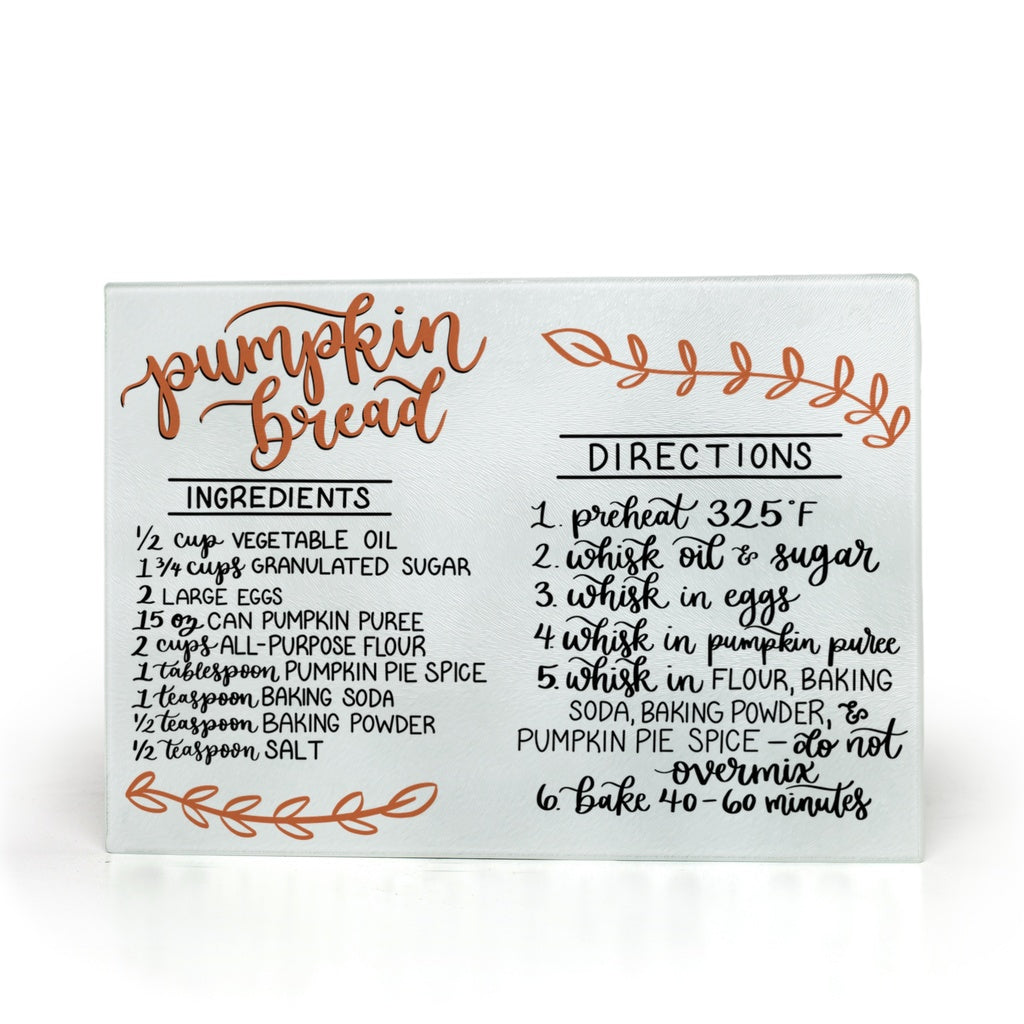 pumpkin
bread
INGREDIENTS
1/2 cup VEGETABLE OIL
1 3/4 cups GRANULATED SUGAR
2 LARGE EGGS
15 oz CAN PUMPKIN PUREE
2 cups ALL-PURPOSE FLOUR
1 tablespoon PUMPKIN PIE SPICE
1 teaspoon BAKING SODA
1/2 teaspoon BAKING POWDER
1/2 teaspoon SALT
DIRECTIONS
1. preheat 325°F
2. whisk oil & sugar
3. whisk in eggs
4. whisk in pumpkin puree
5. whisk in FLOUR, BAKING
SODA, BAKING POWDER, &
PUMPKIN PIE SPICE - do not
overmix
6. bake 40-60 minutes